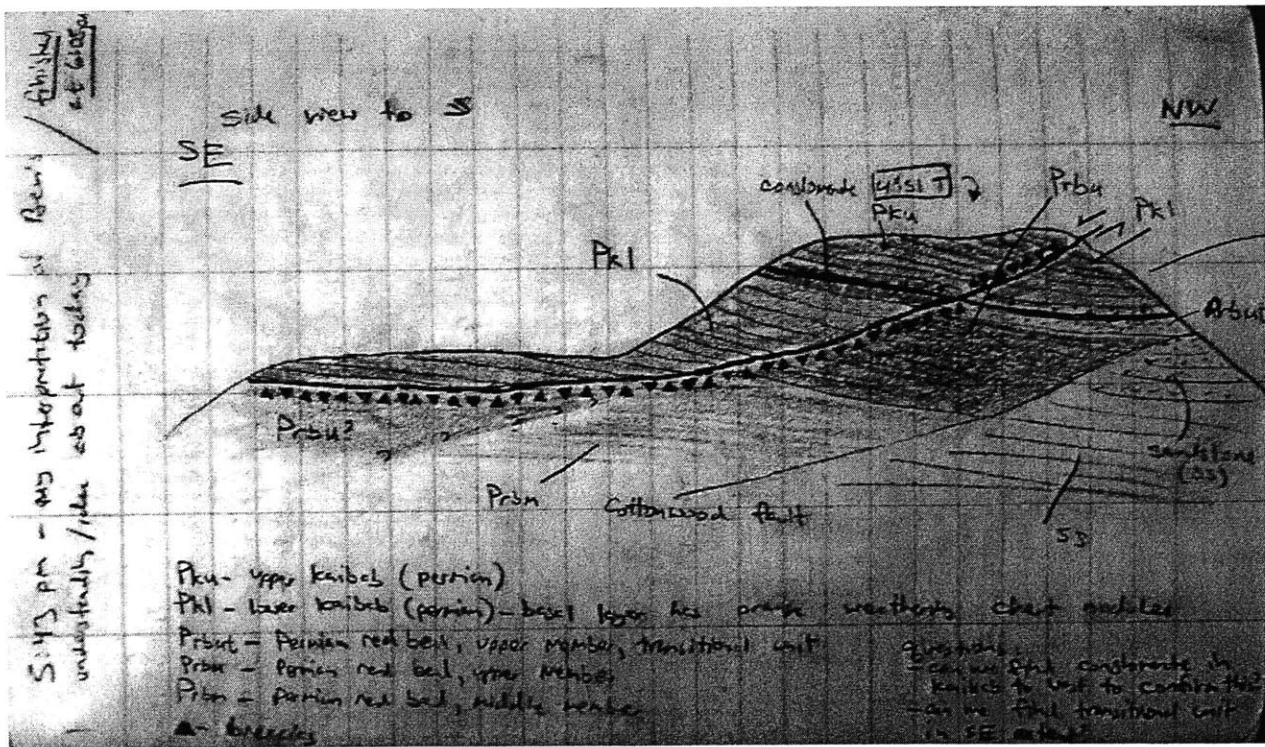 5:43 pm - my interpretation of Ben's / finished at 6:08pm
understanding/idea about today
Side view to S
SE
NW
conglomerate
PKu
Prbu
Pkl
Pkl
Prbut
Prbu?
?
?
Prbm
Cottonwood fault
sandstone
(SS)
SS
Pku - upper kaibab (permian)
Pkl - lower kaibab (permian) - basal layer has orange weathering chert nodules
Prbut - Permian red bed, upper member, transitional unit
Prbu - Permian red bed, upper member
Prbm - permian red bed, middle member
▲ - breccia
questions:
- can we find conglomerate in
kaibab to west to confirm this?
- can we find transitional unit
in SE